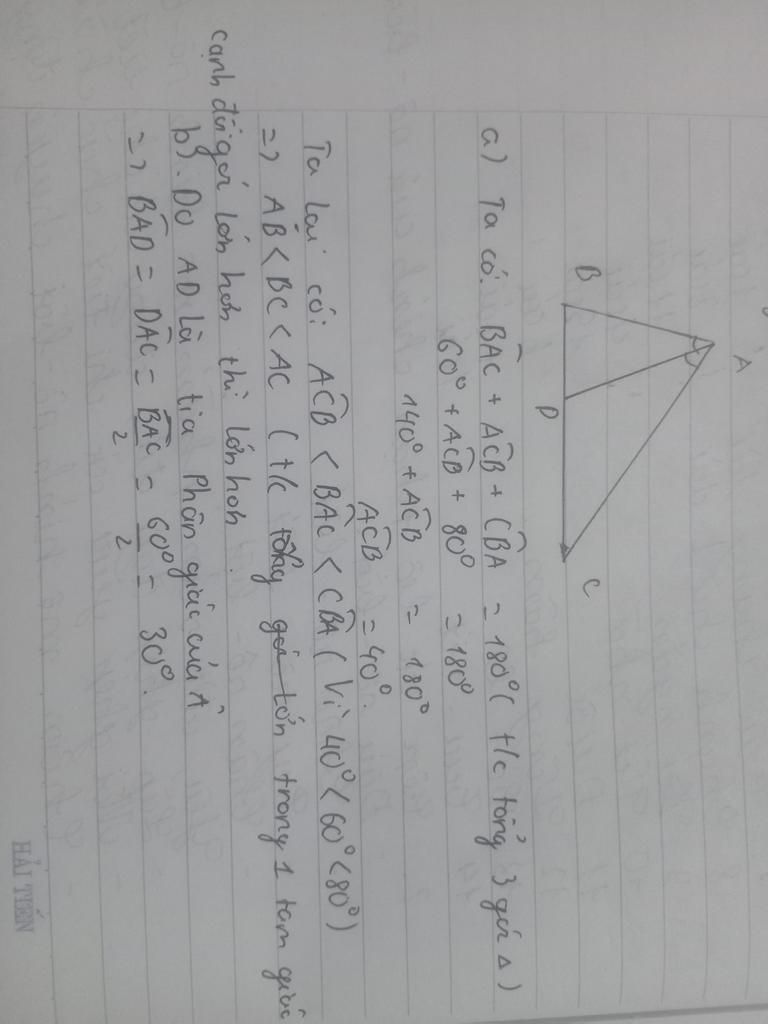 A
B
D
C
a) Ta có: BAC + ACB + CBA = 180° ( t/c tổng 3 góc Δ )
60° + ACB + 80° = 180°
140° + ACB = 180°
ACB = 40°.
Ta lại có: ACB < BAC < CBA ( Vì 40° < 60° < 80° )
=> AB < BC < AC ( t/c trong 1 tam giác
cạnh đối góc lớn hơn thì lớn hơn
b). Do AD là tia phân giác của Â
=> BAD = DAC = BAC/2 = 60°/2 = 30°.
HẢI TIẾN